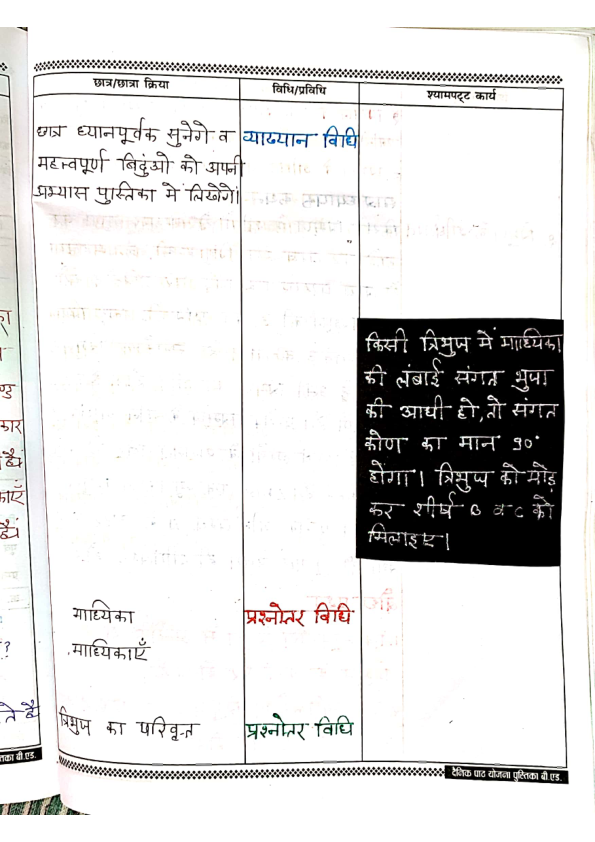 छात्र/छात्रा क्रिया
विधि/प्रविधि
श्यामपट्ट कार्य
छात्र ध्यानपूर्वक सुनेगे व
महत्वपूर्ण बिदुंओ को अपनी
अभ्यास पुस्तिका मे लिखेगे।
व्याख्यान विधि
किसी त्रिभुज में माध्यिका
की लंबाई संगत भुजा
की आधी हो, तो संगत
कोण का मान 90°
होगा। त्रिभुज को मोड़
कर शीर्ष B व C को
मिलाइए।
माध्यिका
प्रश्नोतर विधि
माध्यिकाएँ
त्रिभुज का परिवृत
प्रश्नोतर विधि
दैनिक पाठ योजना पुस्तिका बी.एड.